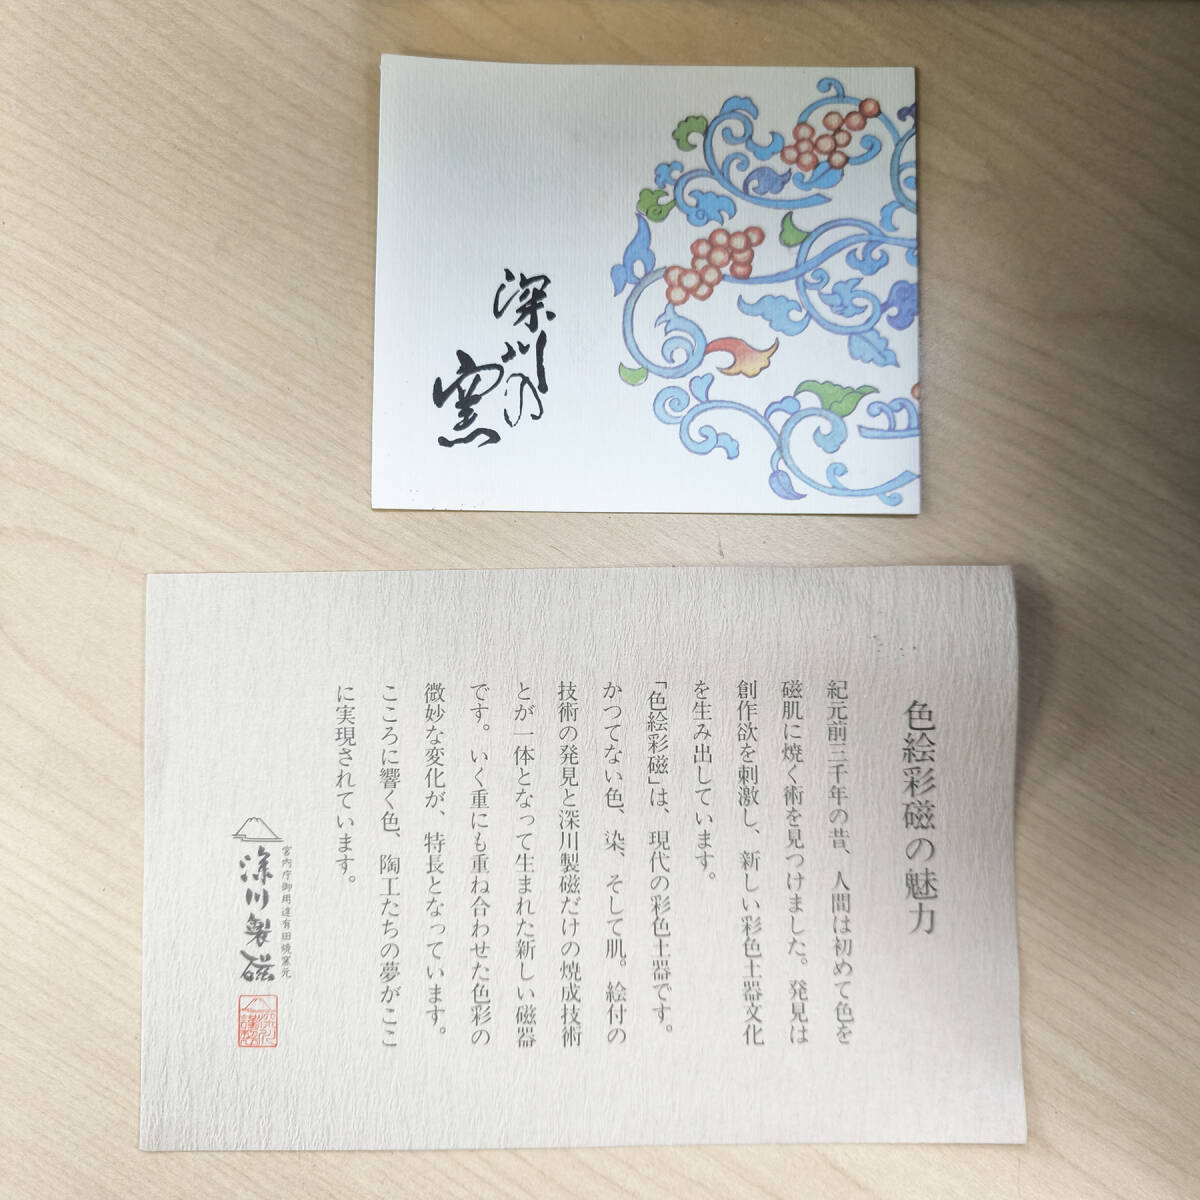 深川の
窯
色絵彩磁の魅力
紀元前三千年の昔、人間は初めて色を
磁肌に焼く術を見つけました。発見は
創作欲を刺激し、新しい彩色土器文化
を生み出しています。
「色絵彩磁」は、現代の彩色土器です。
かつてない色、染、そして肌。絵付の
技術の発見と深川製磁だけの焼成技術
とが一体となって生まれた新しい磁器
です。いく重にも重ね合わせた色彩の
微妙な変化が、特長となっています。
こころに響く色、陶工たちの夢がここ
に実現されています。
宮内庁御用達有田焼窯元
深川製磁
深川
謹製